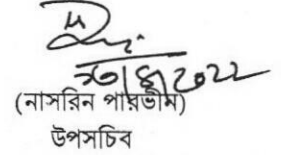 ২০২২
(নাসরিন পারভীন)
উপসচিব